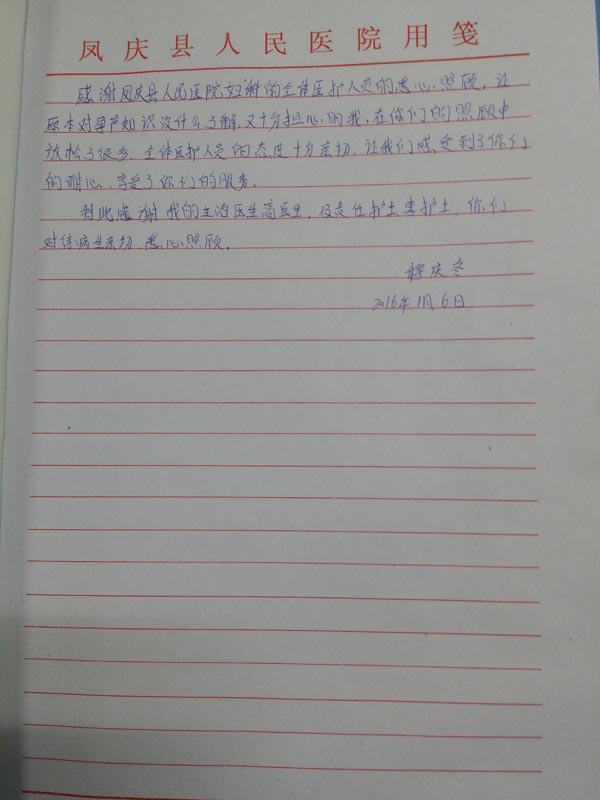 凤庆县人民医院用笺
感谢凤庆县人民医院妇科的全体医护人员的悉心照顾，让
原本对孕产知识没什么了解、又十分担心的我，在你们的照顾中
放松了很多，全体医护人员的态度十分亲切，让我们感受到了你们
的耐心，享受了你们的服务。
特此感谢我的主治医生高医生，及责任护士李护士，你们
对待病患亲切，悉心照顾。
庆冬
2016年11月6日